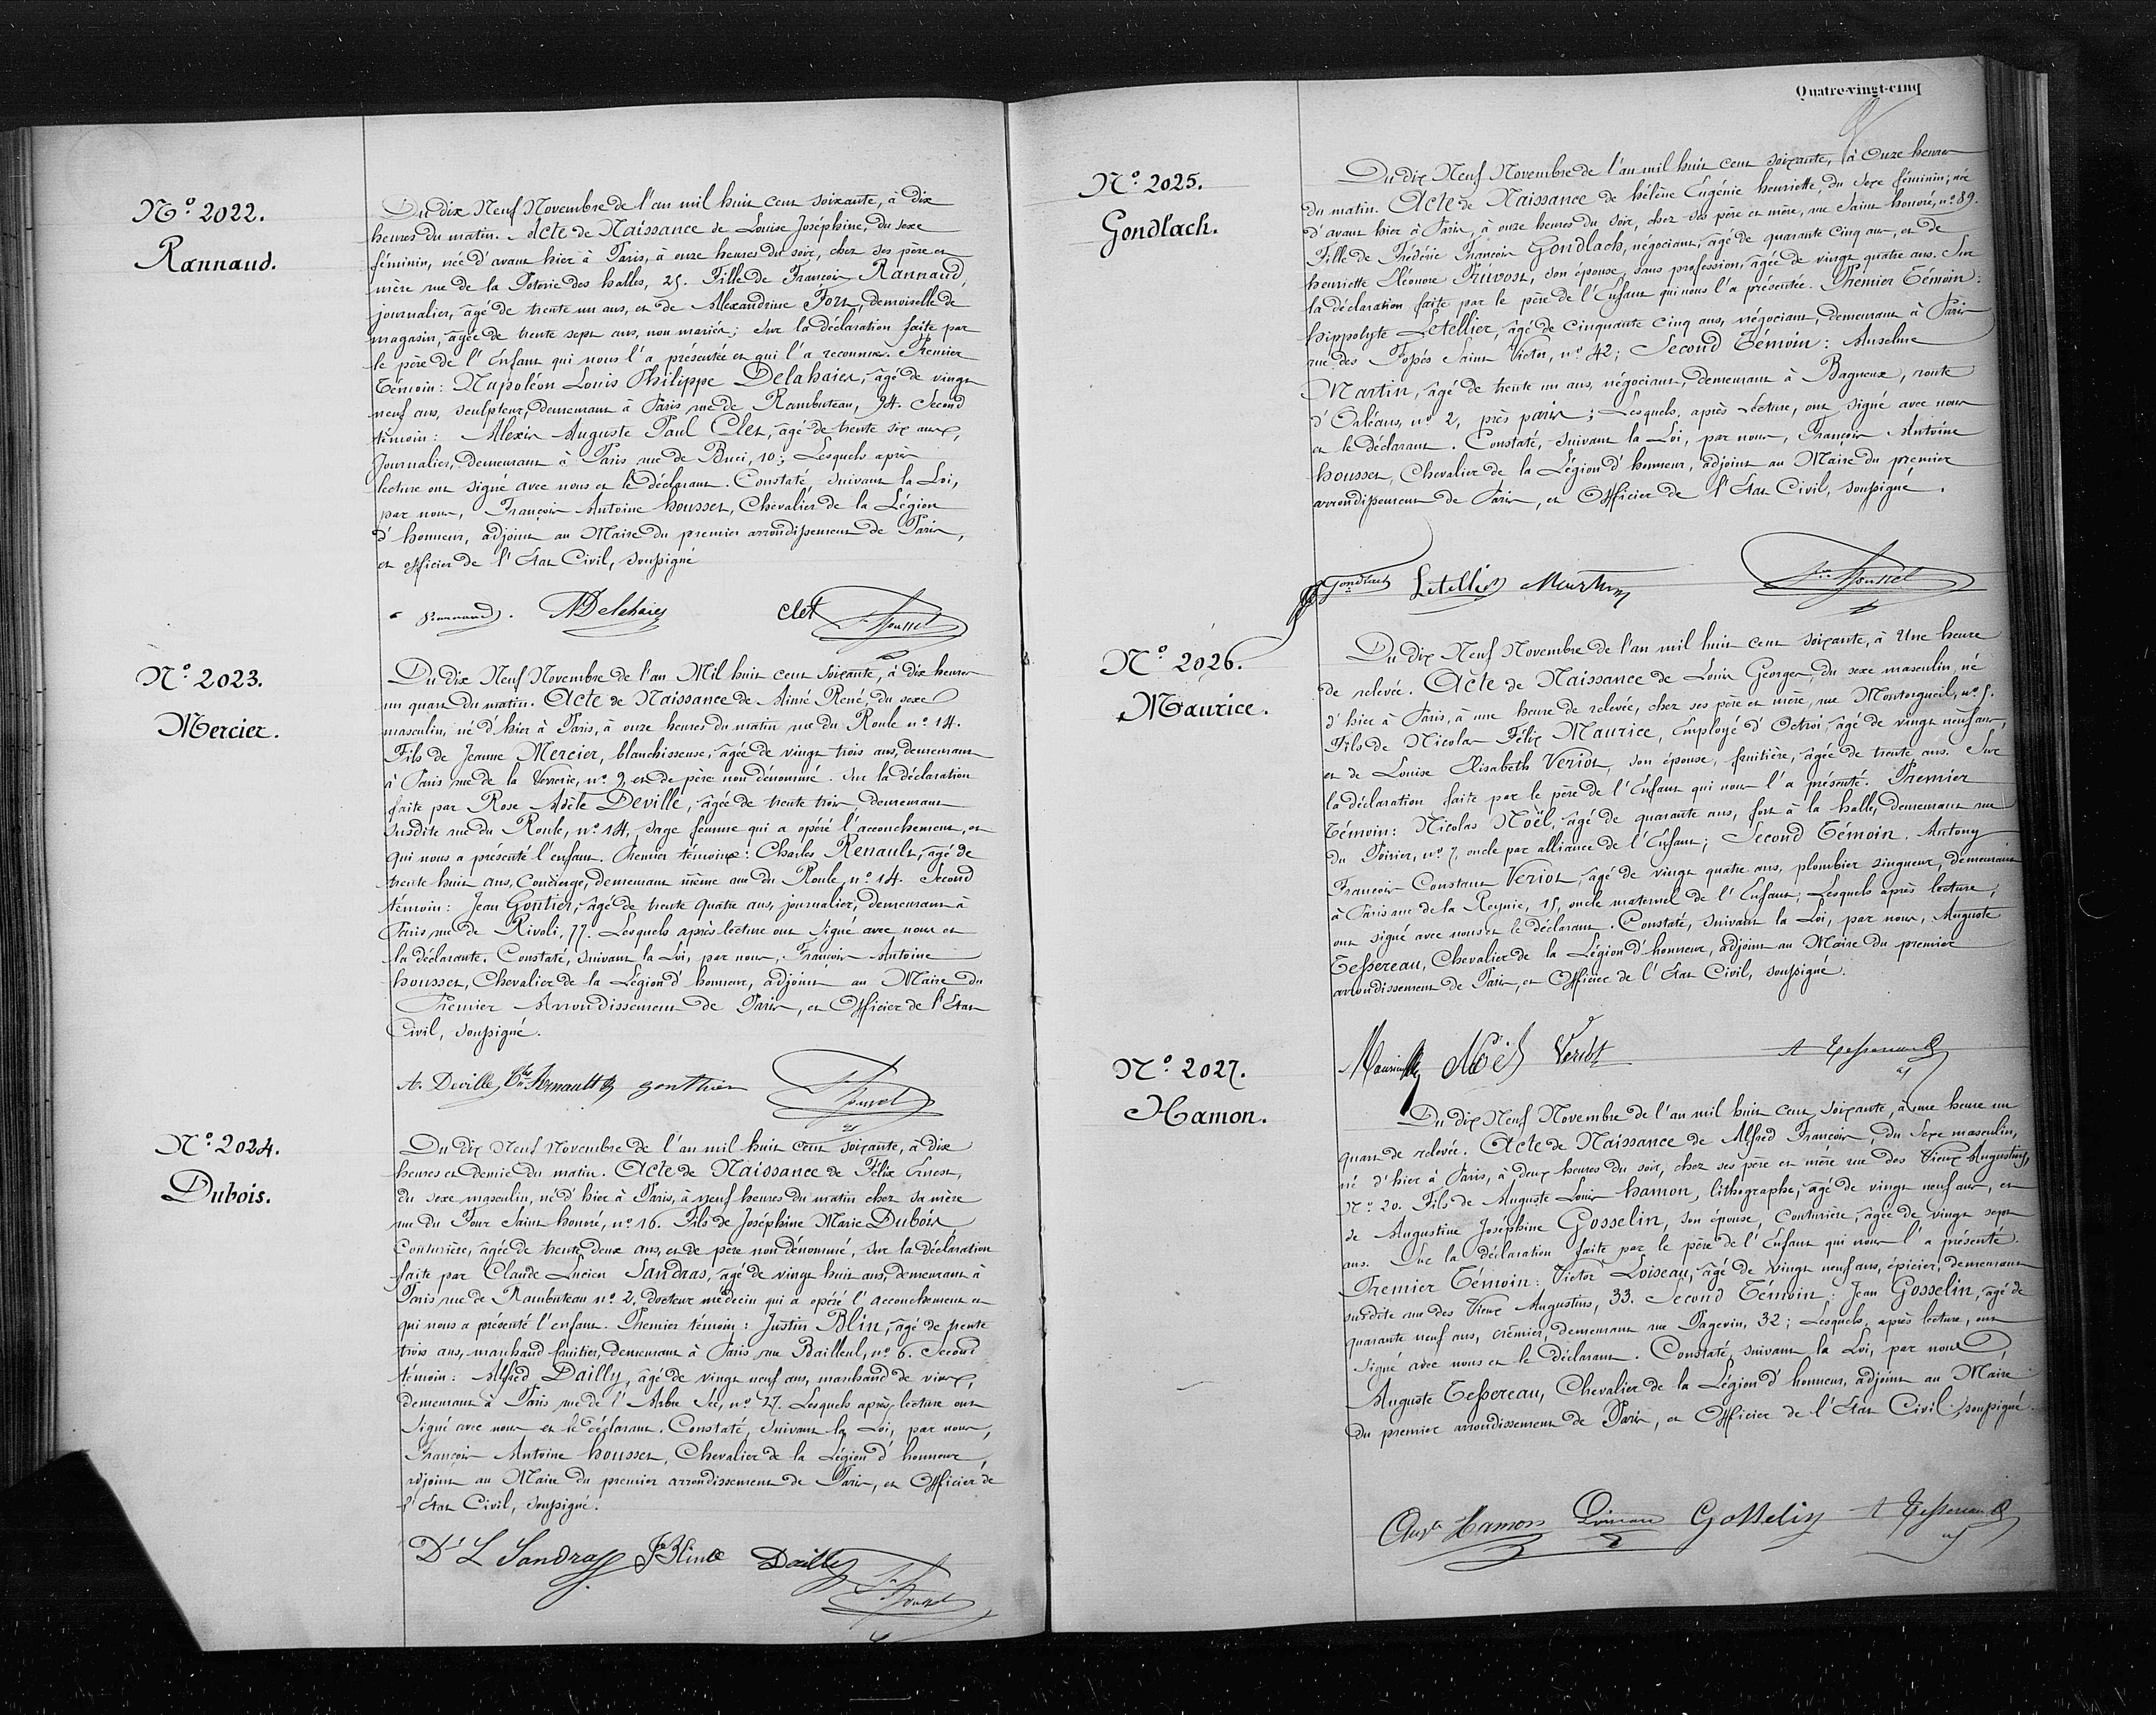 N° 2022.
Rannaud.
Du dix Neuf Novembre de l'an mil huit cent soixante, à dix
heures du matin. Acte de Naissance de Louise Joséphine, du sexe
féminin, née d'avant hier à Paris, à onze heures du soir, chez ses père et
mère rue de la Poterie des halles, 25. Fille de François Rannaud,
journalier, âgé de trente un ans, et de Alexandrine Fort, demoiselle de
magasin, âgée de trente sept ans, non mariés; Sur la déclaration faite par
le père de l'Enfant qui nous l'a présentée et qui l'a reconnue. Premier
Témoin: Napoléon Louis Philippe Delahaies, âgé de vingt
neuf ans, sculpteur, demeurant à Paris rue de Rambuteau, 94. Second
témoin: Alexis Auguste Paul Clet, âgé de trente six ans,
Journalier, demeurant à Paris rue de Buci, 10; Lesquels après
lecture ont signé avec nous et le déclarant. Constaté, suivant la Loi,
par nous, François Antoine housset, Chevalier de la Légion
d'honneur, adjoint au Maire du premier arrondissement de Paris,
et officier de l'Etat Civil, soussigné
Rannaud. NDelehaies Clet Housset
N° 2023.
Mercier.
Du dix Neuf Novembre de l'an Mil huit cent soixante, à dix heures
un quart du matin. Acte de Naissance de Aimé René, du sexe
masculin, né d'hier à Paris, à onze heures du matin rue du Roule n° 14.
Fils de Jeanne Mercier, blanchisseuse, âgée de vingt trois ans, demeurant
à Paris rue de la Verrerie, n° 9, et de père non dénommé. Sur la déclaration
faite par Rose Adèle Deville, âgée de trente trois, demeurant
susdite rue du Roule, n° 14, sage femme qui a opéré l'accouchement, et
qui nous a présenté l'enfant. Premier témoins: Charles Renault, âgé de
trente huit ans, Concierge, demeurant même rue du Roule, n° 14. Second
témoin: Jean Gontier, âgé de trente quatre ans, journalier, demeurant à
Paris rue de Rivoli, 77. Lesquels après lecture ont signé avec nous et
la déclarante. Constaté, suivant la Loi, par nous, François Antoine
housset, Chevalier de la Légion d'honneur, adjoint au Maire du
Premier Arrondissement de Paris, et Officier de l'Etat
Civil, soussigné.
A. Deville Renault gonthier Housset
N° 2024.
Dubois.
Du dix Neuf Novembre de l'an mil huit cent soixante, à dix
heures et demie du matin. Acte de Naissance de Félix Ernest,
du sexe masculin, né d'hier à Paris, à neuf heures du matin chez sa mère
rue du Four Saint honoré, n° 16. Fils de Joséphine Marie Dubois
Couturière, âgée de trente deux ans, et de père non dénommé, Sur la déclaration
faite par Claude Lucien Sandras, âgé de vingt huit ans, demeurant à
Paris rue de Rambuteau n° 2, docteur médecin qui a opéré l'accouchement et
qui nous a présenté l'enfant. Premier témoin: Justin Blin, âgé de trente
trois ans, marchand fruitier, demeurant à Paris rue Bailleul, n° 6. Second
témoin: Alfred Dailly, âgé de vingt neuf ans, marchand de vins,
demeurant à Paris rue de l'Arbre Sec, n° 27. Lesquels après lecture ont
signé avec nous et le déclarant. Constaté, suivant la Loi, par nous,
François Antoine housset, Chevalier de la Légion d'honneur,
adjoint au Maire du premier arrondissement de Paris, et Officier de
l'Etat Civil, soussigné.
Dr L Sandras Blin Dailly Housset
Quatre-vingt-cinq
N° 2025.
Gondlach.
Du dix Neuf Novembre de l'an mil huit cent soixante, à Onze heures
du matin. Acte de Naissance de hélène Eugénie henriette, du sexe féminin, née
d'avant hier à Paris, à onze heures du soir, chez ses père et mère, rue Saint honoré, n° 89.
Fille de Frédéric François Gondlach, négociant, âgé de quarante cinq ans, et de
henriette Eléonore Pruvost, son épouse, sans profession, âgée de vingt quatre ans. Sur
la déclaration faite par le père de l'Enfant qui nous l'a présentée. Premier Témoin:
hippolyte Letellier, âgé de cinquante cinq ans, négociant, demeurant à Paris
rue des Fossés Saint Victor, n° 42; Second Témoin: Anselme
Martin, âgé de trente un ans, négociant, demeurant à Bagneux, route
d'Orléans, n° 2, près paris; Lesquels, après Lecture, ont signé avec nous
et le déclarant. Constaté, suivant la Loi, par nous, François Antoine
housset, Chevalier de la Légion d'honneur, adjoint au Maire du premier
arrondissement de Paris, et Officier de l'Etat Civil, soussigné.
Gondlach Letellier Martin Housset
N° 2026.
Maurice.
Du dix Neuf Novembre de l'an mil huit cent soixante, à Une heure
de relevée. Acte de Naissance de Louis Georges, du sexe masculin, né
d'hier à Paris, à une heure de relevée, chez ses père et mère, rue Montorgueil, n° 5.
Fils de Nicolas Félix Maurice, Employé d'Octroi, âgé de vingt neuf ans,
et de Louise Elisabeth Veriot, son épouse, fruitière, âgée de trente ans. Sur
la déclaration faite par le père de l'Enfant qui nous l'a présenté. Premier
Témoin: Nicolas Noël, âgé de quarante ans, fort à la halle, demeurant rue
du Poirier, n° 7, oncle par alliance de l'Enfant; Second Témoin. Antony
François Constant Veriot, âgé de vingt quatre ans, plombier zingueur, demeurant
à Paris rue de la Reynie, 15, oncle maternel de l'Enfant; Lesquels après lecture,
ont signé avec nous et le déclarant. Constaté, suivant la Loi, par nous, Auguste
Tessereau, Chevalier de la Légion d'honneur, adjoint au Maire du premier
arrondissement de Paris, et Officier de l'Etat Civil, soussigné.
Maurice Noël Veriot A Tessereau
N° 2027.
Hamon.
Du dix Neuf Novembre de l'an mil huit cent soixante, à une heure un
quart de relevée. Acte de Naissance de Alfred François, du sexe masculin,
né d'hier à Paris, à deux heures du soir, chez ses père et mère rue des Vieux Augustins,
N° 20. Fils de Auguste Louis hamon, lithographe, âgé de vingt neuf ans, et
de Augustine Joséphine Gosselin, son épouse, Couturière, âgée de vingt sept
ans. Sur la déclaration faite par le père de l'Enfant qui nous l'a présenté.
Premier Témoin: Victor Loiseau, âgé de vingt neuf ans, épicier, demeurant
susdite rue des Vieux Augustins, 33. Second Témoin: Jean Gosselin, âgé de
quarante neuf ans, crémier, demeurant rue Pagevin, 32; Lesquels, après lecture, ont
signé avec nous et le déclarant. Constaté, suivant la Loi, par nous
Auguste Tessereau, Chevalier de la Légion d'honneur, adjoint au Maire
du premier arrondissement de Paris, et Officier de l'Etat Civil, soussigné.
Augte Hamon Loiseau Gosselin A Tessereau